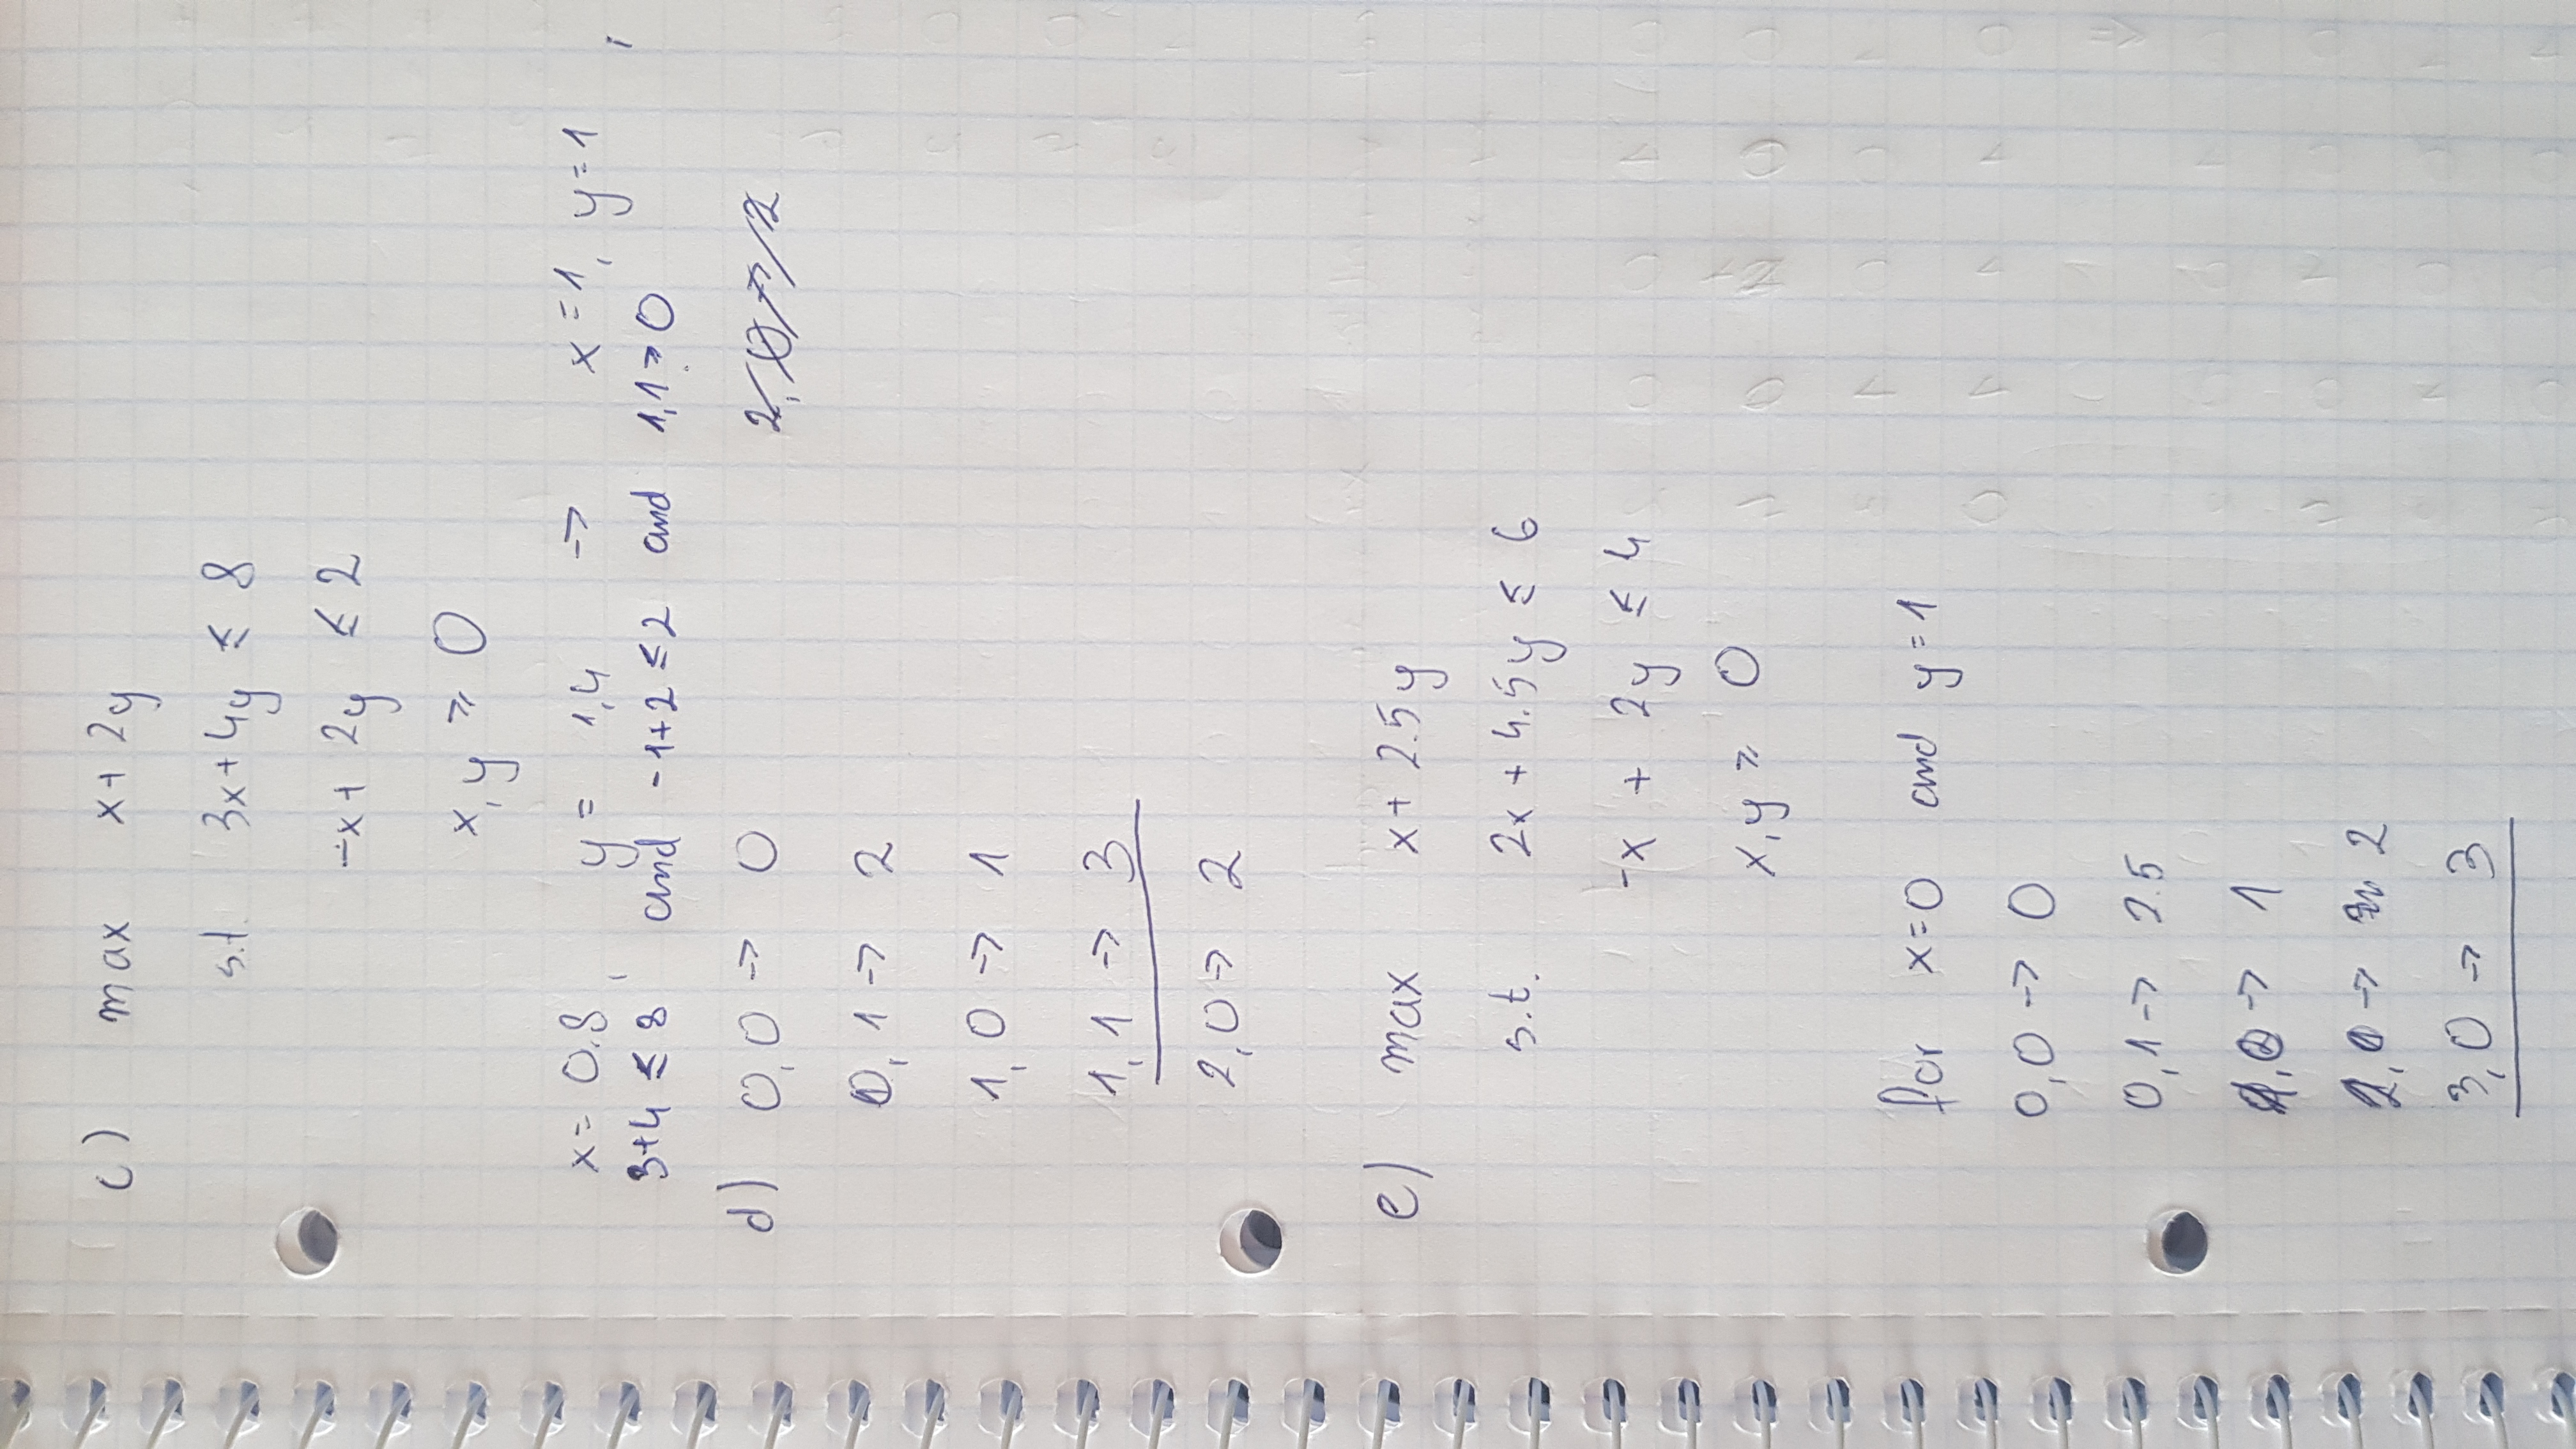 c) max x + 2y
s.t. 3x + 4y ≤ 8
-x + 2y ≤ 2
x, y ≥ 0
x = 0.8, y = 1,4 → x = 1, y = 1,
3+4 ≤ 8 and -1+2 ≤ 2 and 1,1 ≥ 0
d) 0,0 → 0 2,0 → 2
0,1 → 2
1,0 → 1
1,1 → 3
2,0 → 2
e) max x + 2.5y
s.t. 2x + 4.5y ≤ 6
-x + 2y ≤ 4
x, y ≥ 0
for x=0 and y=1
0,0 → 0
0,1 → 2.5
1,0 → 1
2,0 → 2
3,0 → 3